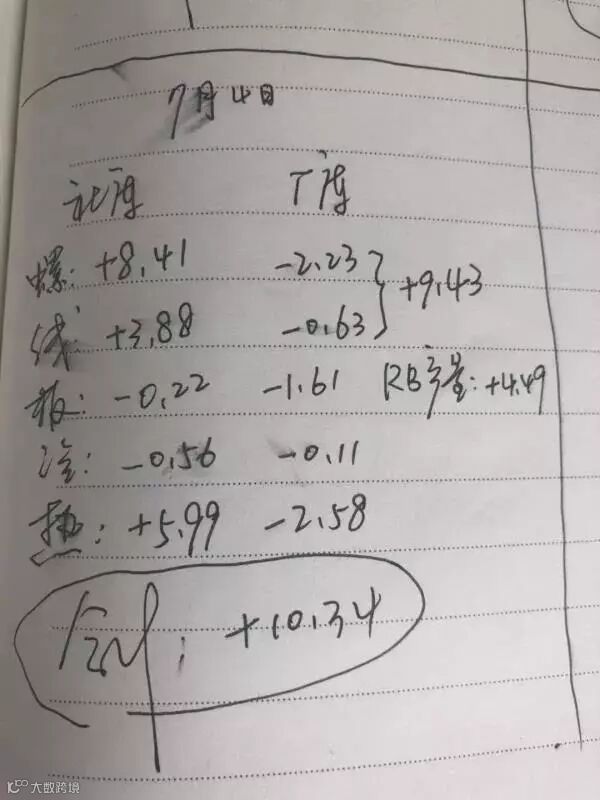 7月4日
社库 厂库
螺: +8.41 -2.23
+9.43
线: +3.88 -0.63
板: -0.22 -1.61 RB产量: +4.49
冷: -0.56 -0.11
热: +5.99 -2.58
: +10.34
大数跨境